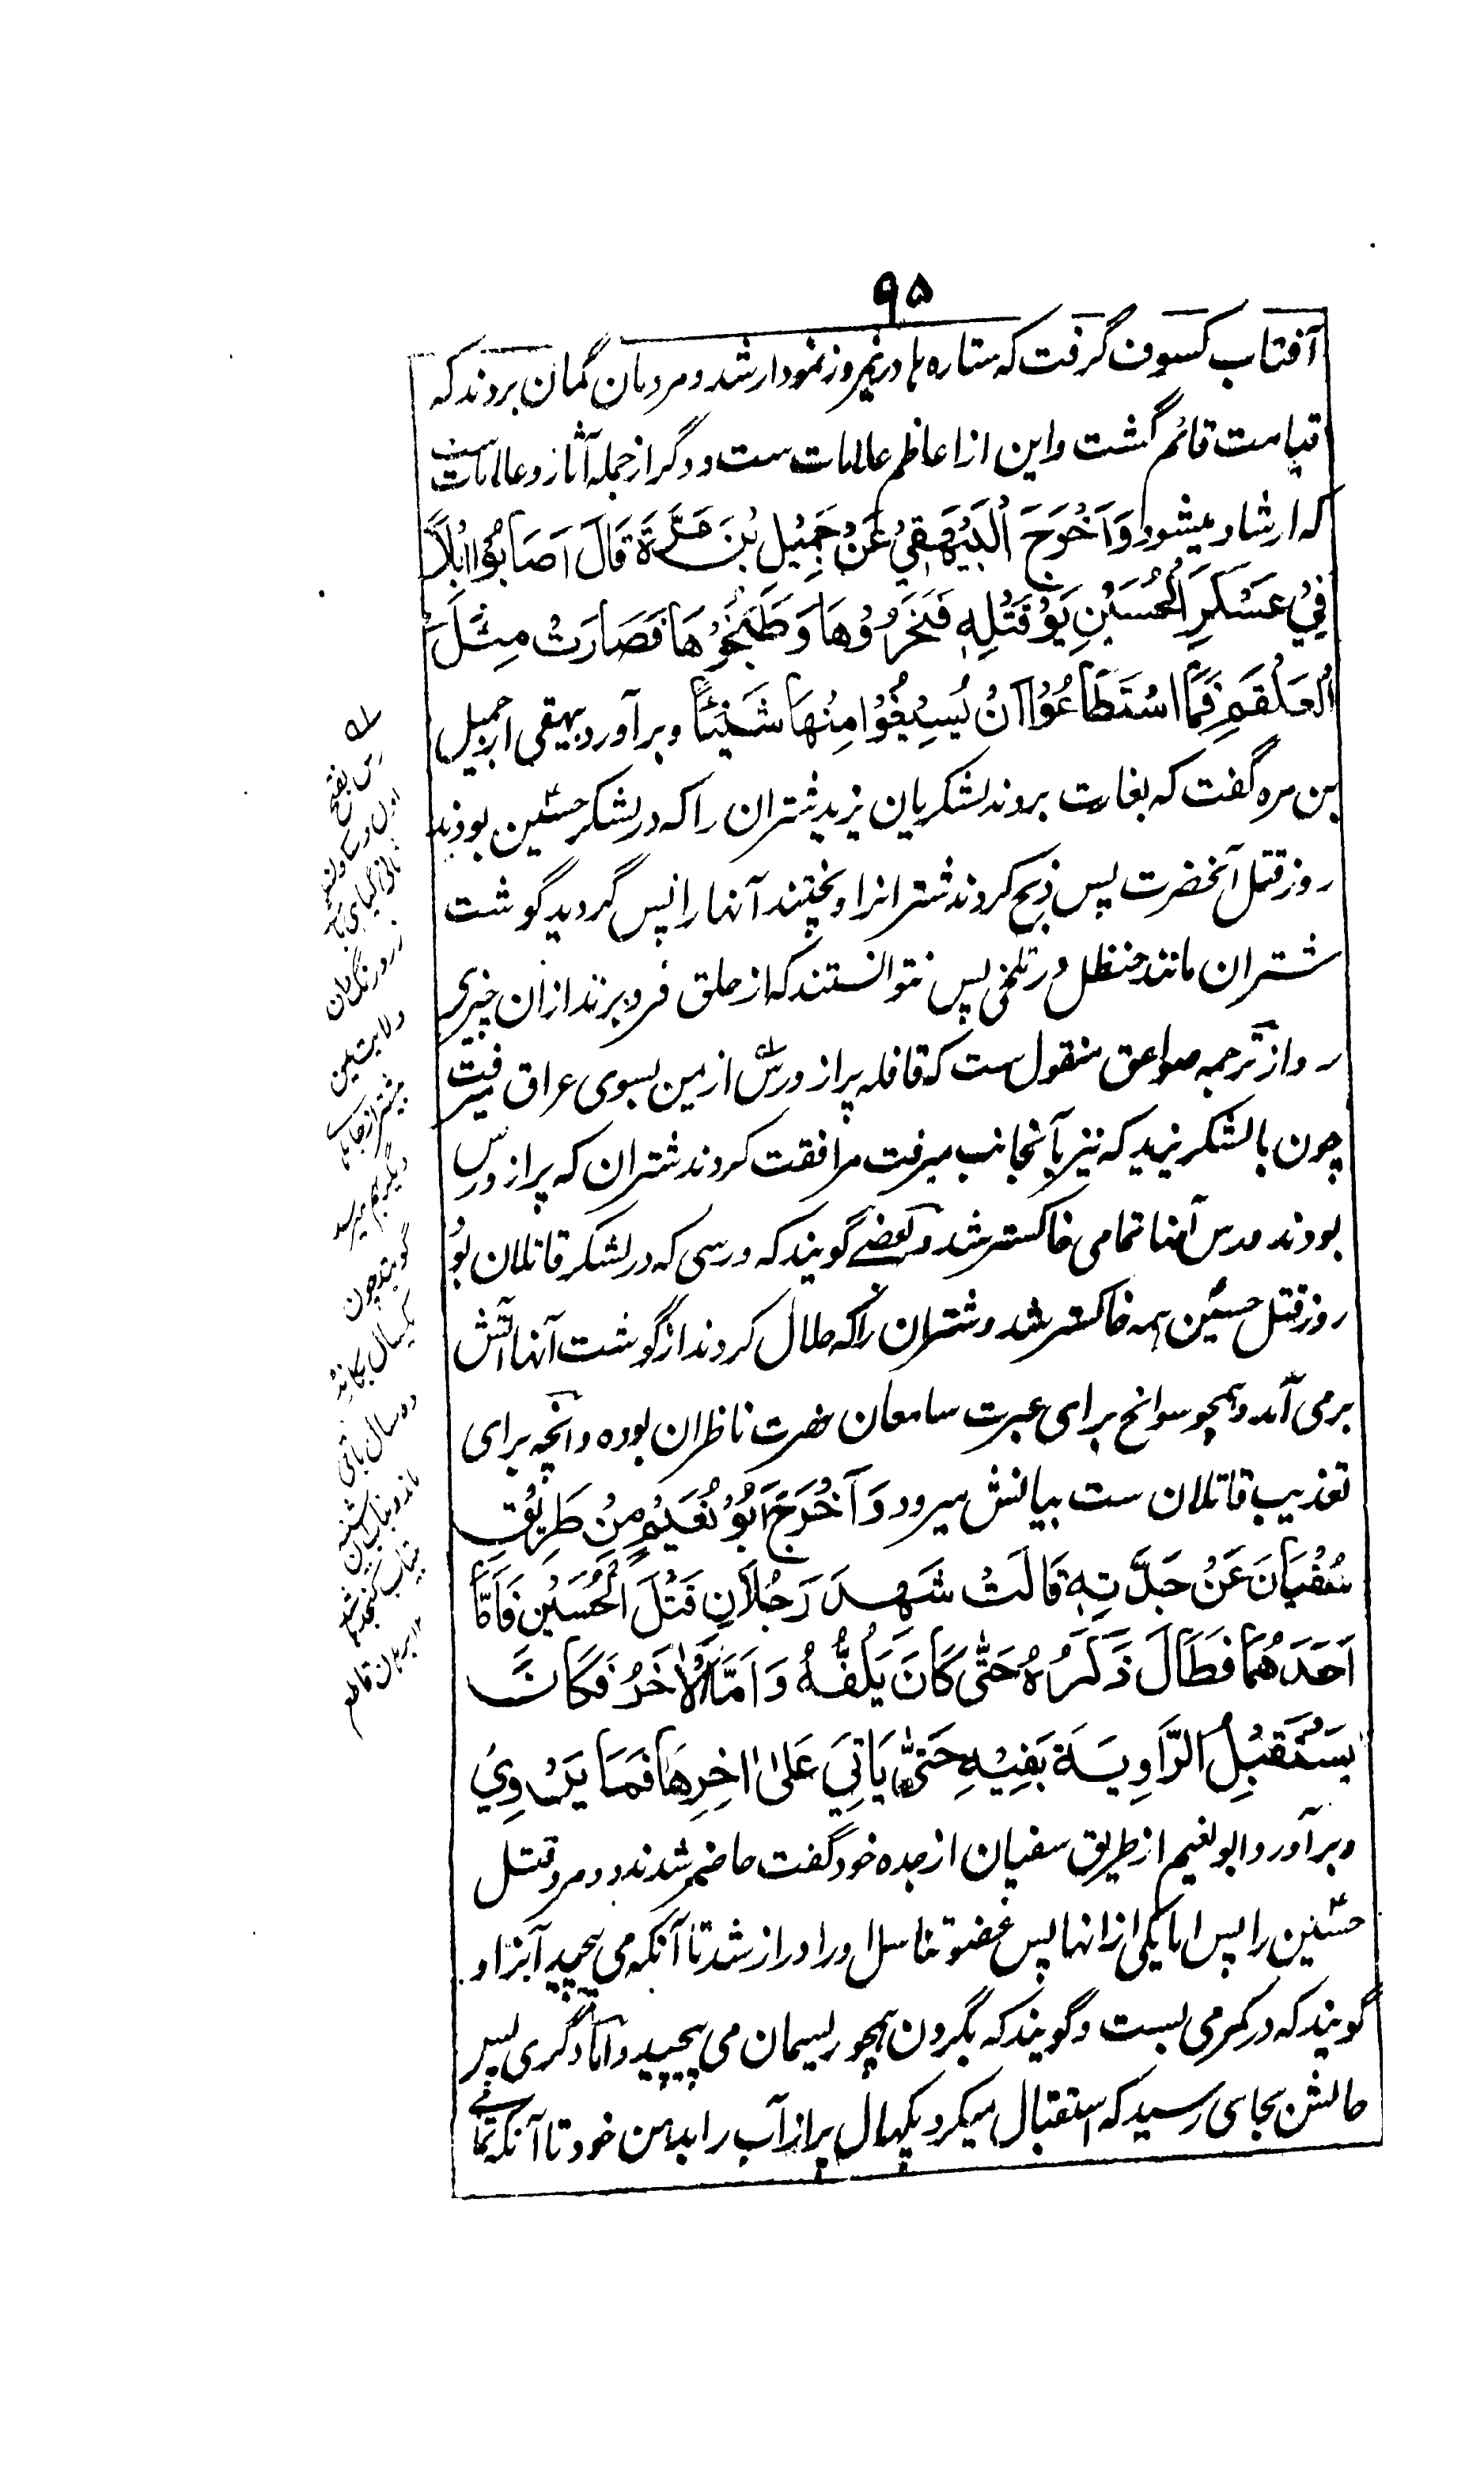 ۹۵
آفتاب کسوف گرفت که ستاره ها در نیمروز نمودار شد و مردمان گمان بردند که
قیامت قائم گشت و این از اعاظم علامات ست و دگر از جمله آثار و علامات ست
که ارشاد میشود وَاَخْرَجَ الْبَیْهَقِیُّ عَنْ جَمِیْلِ بْنِ مُرَّةَ قَالَ اَصَابُوْا اِبِلًا
فِیْ عَسْکَرِ الْحُسَیْنِ یَوْمَ قَتْلِهٖ فَنَحَرُوْهَا وَطَبَخُوْهَا فَصَارَتْ مِثْلَ
الْعَلْقَمِ فَمَا اسْتَطَاعُوْا اَنْ یُسِیْغُوْا مِنْهَا شَیْئًا و برآورد بیهقی از جمیل
بن مره گفت که بغارت بردند لشکریان یزید شتران را که در لشکر حسین بودند
روز قتل آنحضرت پس ذبح کردند شترانرا و پختند آنها را پس گردید گوشت
شتران مانند حنظل در تلخی پس نتوانستند که از حلق فرو برند ازان چیزی
و از ترجمه صواعق منقول ست که قافله پر از ورس از یمن بسوی عراق میرفت
چون با لشکر یزید که نیز بآنجانب میرفت مرافقت کردند شتران که پر از ورس
بودند ورس آنها تمامی خاکستر شد و بعضے گویند که ورسی که در لشکر قاتلان بود
روز قتل حسین همه خاکستر شد و شتران را که حلال کردند از گوشت آنها آتش
برمی آمد و همچو سوانح برای عبرت سامعان حضرت ناظران بوده و آنچه برای
تعذیب قاتلان ست بیانش میرود وَاَخْرَجَ اَبُوْ نُعَیْمٍ مِنْ طَرِیْقِ
سُفْیَانَ عَنْ جَدَّتِهٖ قَالَتْ شَهِدَ رَجُلَانِ قَتْلَ الْحُسَیْنِ فَاَمَّا
اَحَدُهُمَا فَطَالَ ذَکَرُهُ حَتّٰی کَانَ یَلُفُّهُ وَاَمَّا الْاٰخَرُ فَکَانَ
یَسْتَقْبِلُ الرَّاوِیَةَ بِفِیْهِ حَتّٰی یَاتِیَ عَلٰی اٰخِرِهَا فَمَا یَرْوِیْ
و برآورد ابو نعیم از طریق سفیان از جده خود گفت حاضر شدند دو مرد قتل
حسین را پس اما یکی ازانها پس عضو تناسل او را دراز شد تا آنکه می پیچید آنرا و
گویند که در کمر می بست و گویند که بگردن همچو ریسمان می پیچید و اما دگری پس
حالش بجای رسید که استقبال میکرد پکهال پر از آب را بدهن خود تا آنکه تمامی
ورس بفتح
اول و سکون
ثانی گیاهی باشد
زرد رنگ و آن
ولایت یمن
بیشتر از جاهای
دیگر بهم میرسد
گویند چون
یکسال بکارند
ده سال باقی
برهان قاطع